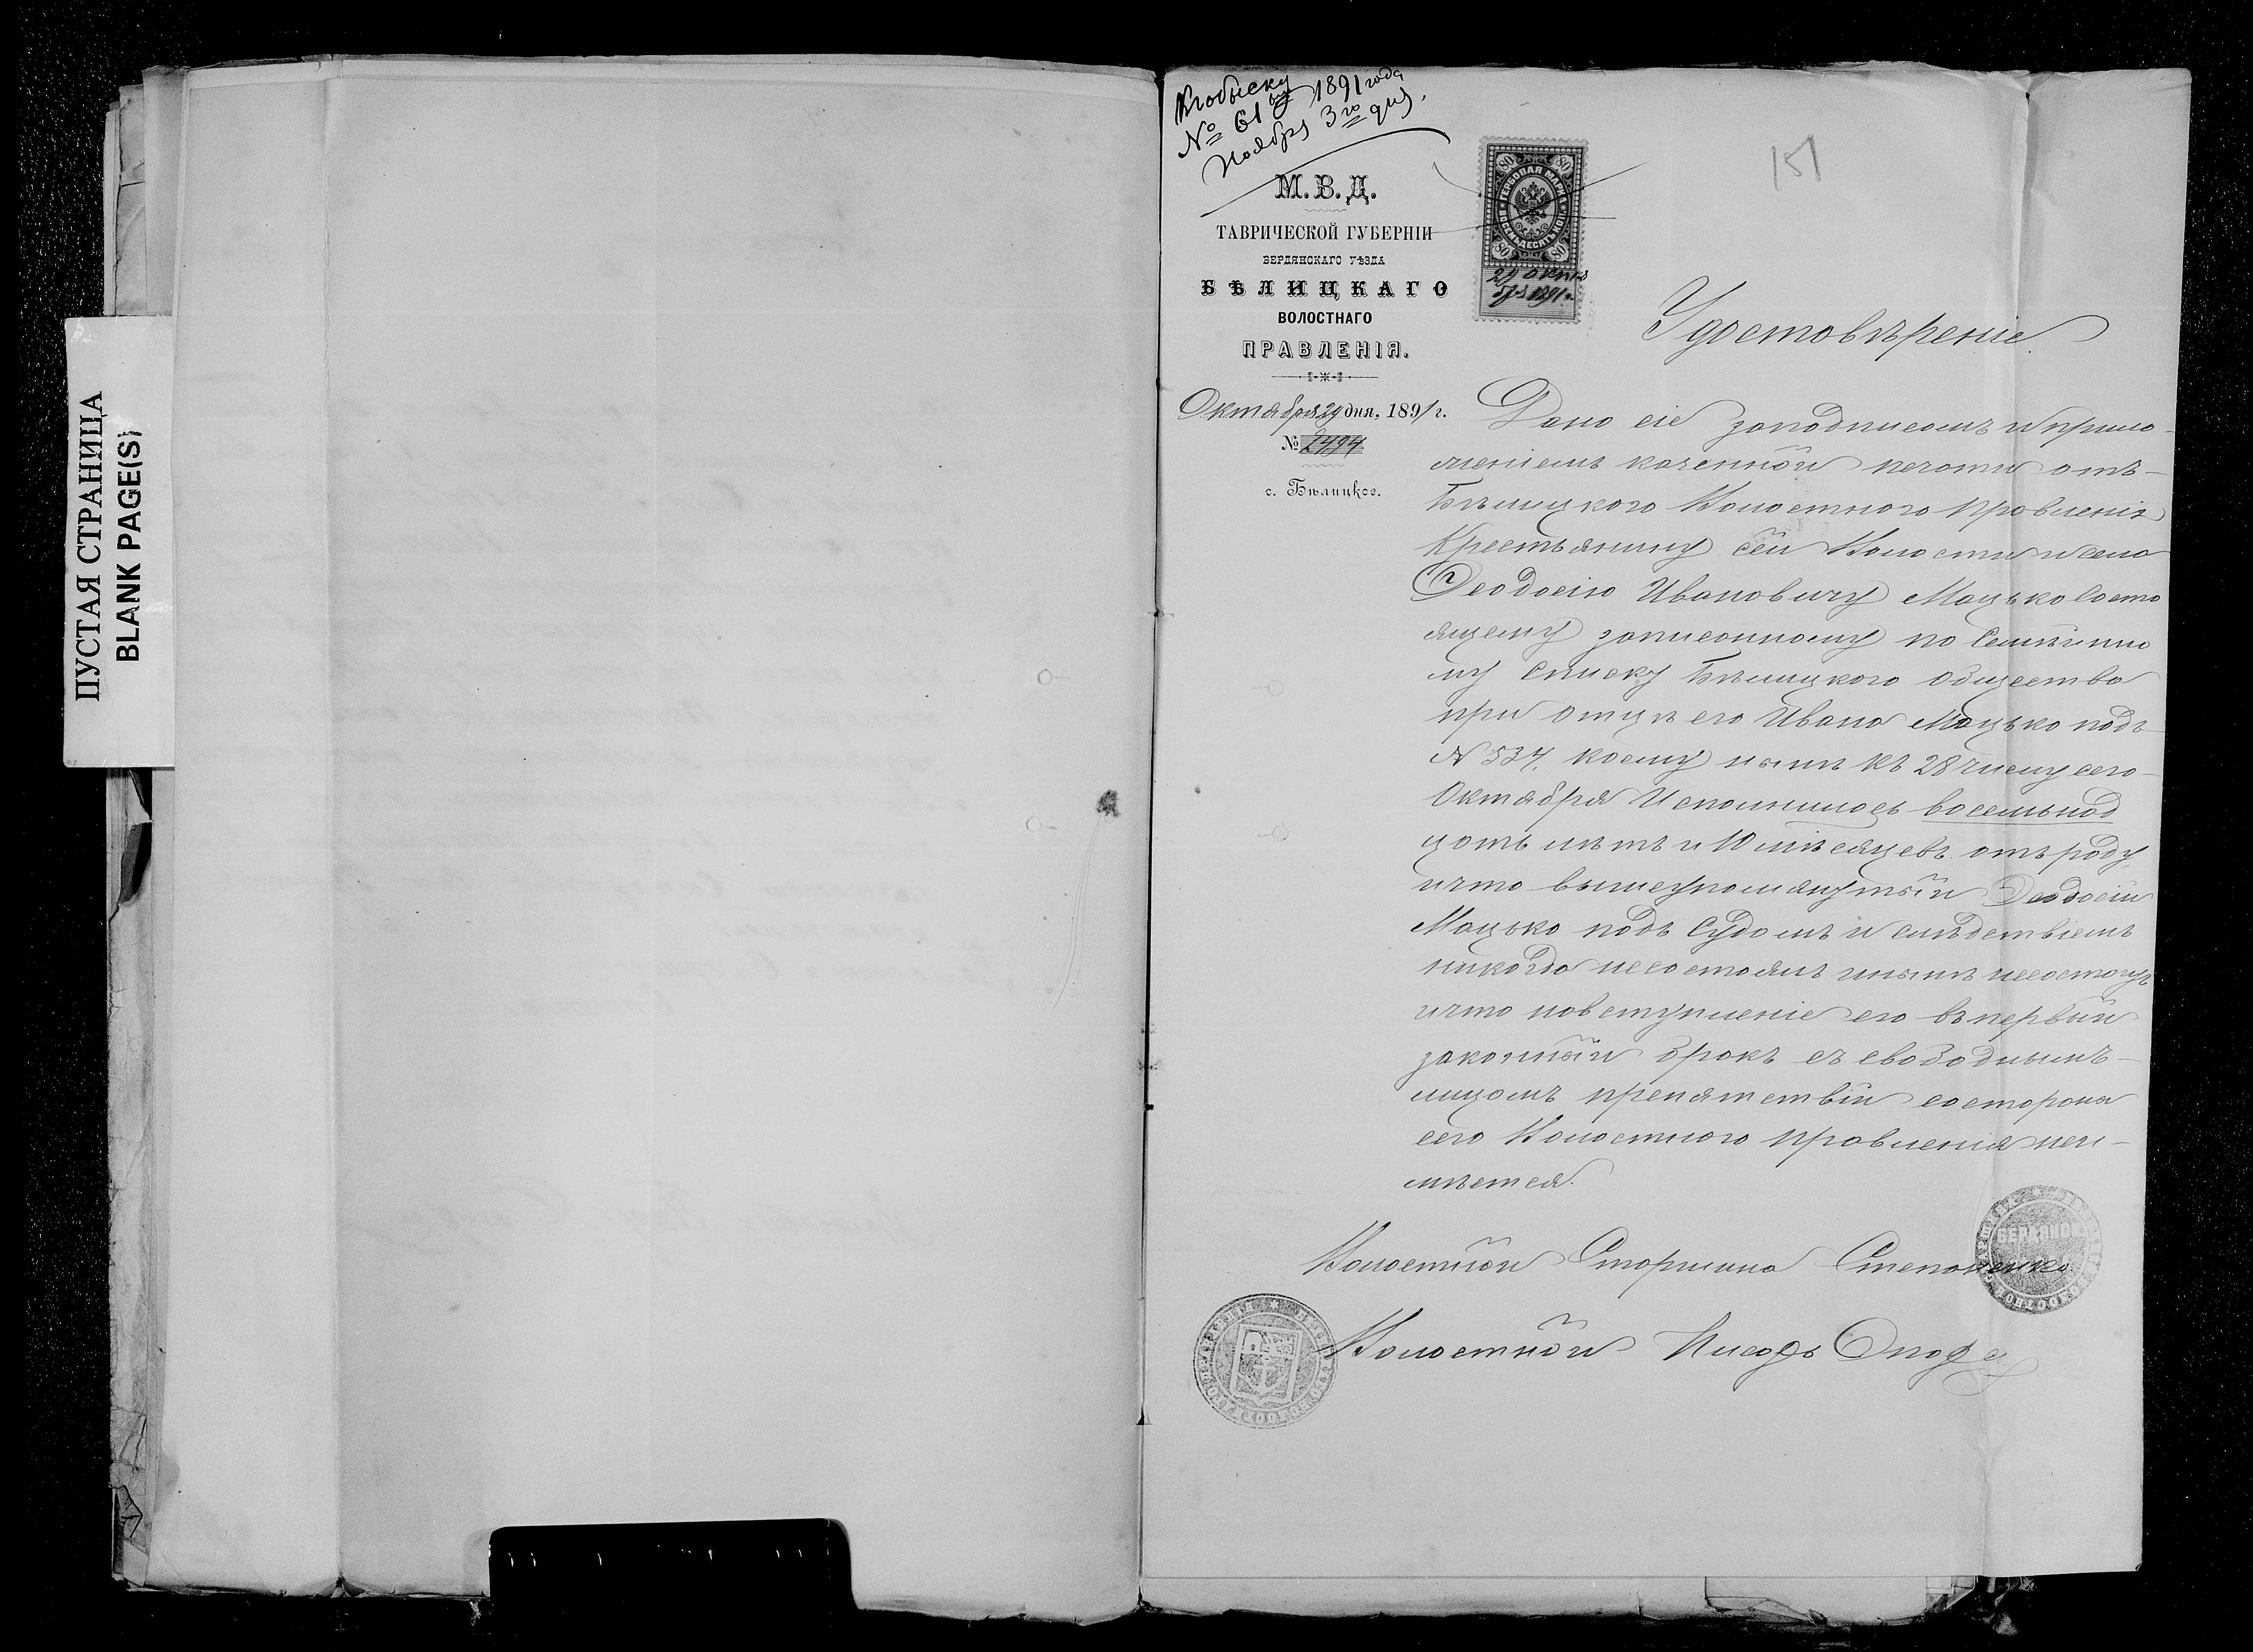 ПУСТАЯ СТРАНИЦА
BLANK PAGE(S)
Къ обыску
№ 61му 1891 года
Ноября 3го дня.
151
М.В.Д.
ТАВРИЧЕСКОЙ ГУБЕРНІИ
БЕРДЯНСКАГО УѢЗДА
БѢЛИЦКАГО
ВОЛОСТНАГО
ПРАВЛЕНІЯ.
Октября 29 дня, 1891 г.
№ 2494
с. Бѣлицкое.
80 80
ГЕРБОВАЯ МАРКА
ВОСЕМЬДЕСЯТЪ КОП.
80 80
29 октя
бря 1891 г.
Удостовѣреніе
Дано сіе заподписомъ и прило
женіемъ казенной печати отъ
Бѣлицкого Волостного Правленія
Крестьянину сей Волости и села
Феодосію Ивановичу Мацько Состо
ящему записанному по Семѣйно
му Списку Бѣлицкого Общества
при отцѣ его Ивана Мацько подъ
№ 534, коему нынѣ къ 28 числу сего
Октября Исполнилось восемьнад
цать лѣтъ и 10 мѣсяцевъ отъ роду,
ичто вышеупомянутый Феодосій
Мацько подъ Судомъ и слѣдствіемъ
никогда несостоялъ инынѣ несостоитъ
ичто повступленіе его въ первый
законный бракъ съ свободнымъ
лицомъ препятствій состороны
сего Волостного Правленія неи-
мѣется.
Волостной Старшина Степаненко
Волостной Писарь